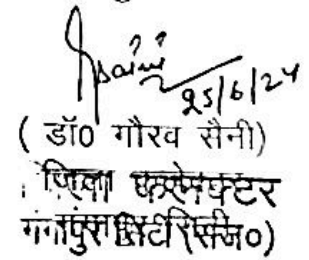 25/6/24
( डॉ0 गौरव सैनी)
जिला कलेक्टर
गंगापुर सिटी (राज0)